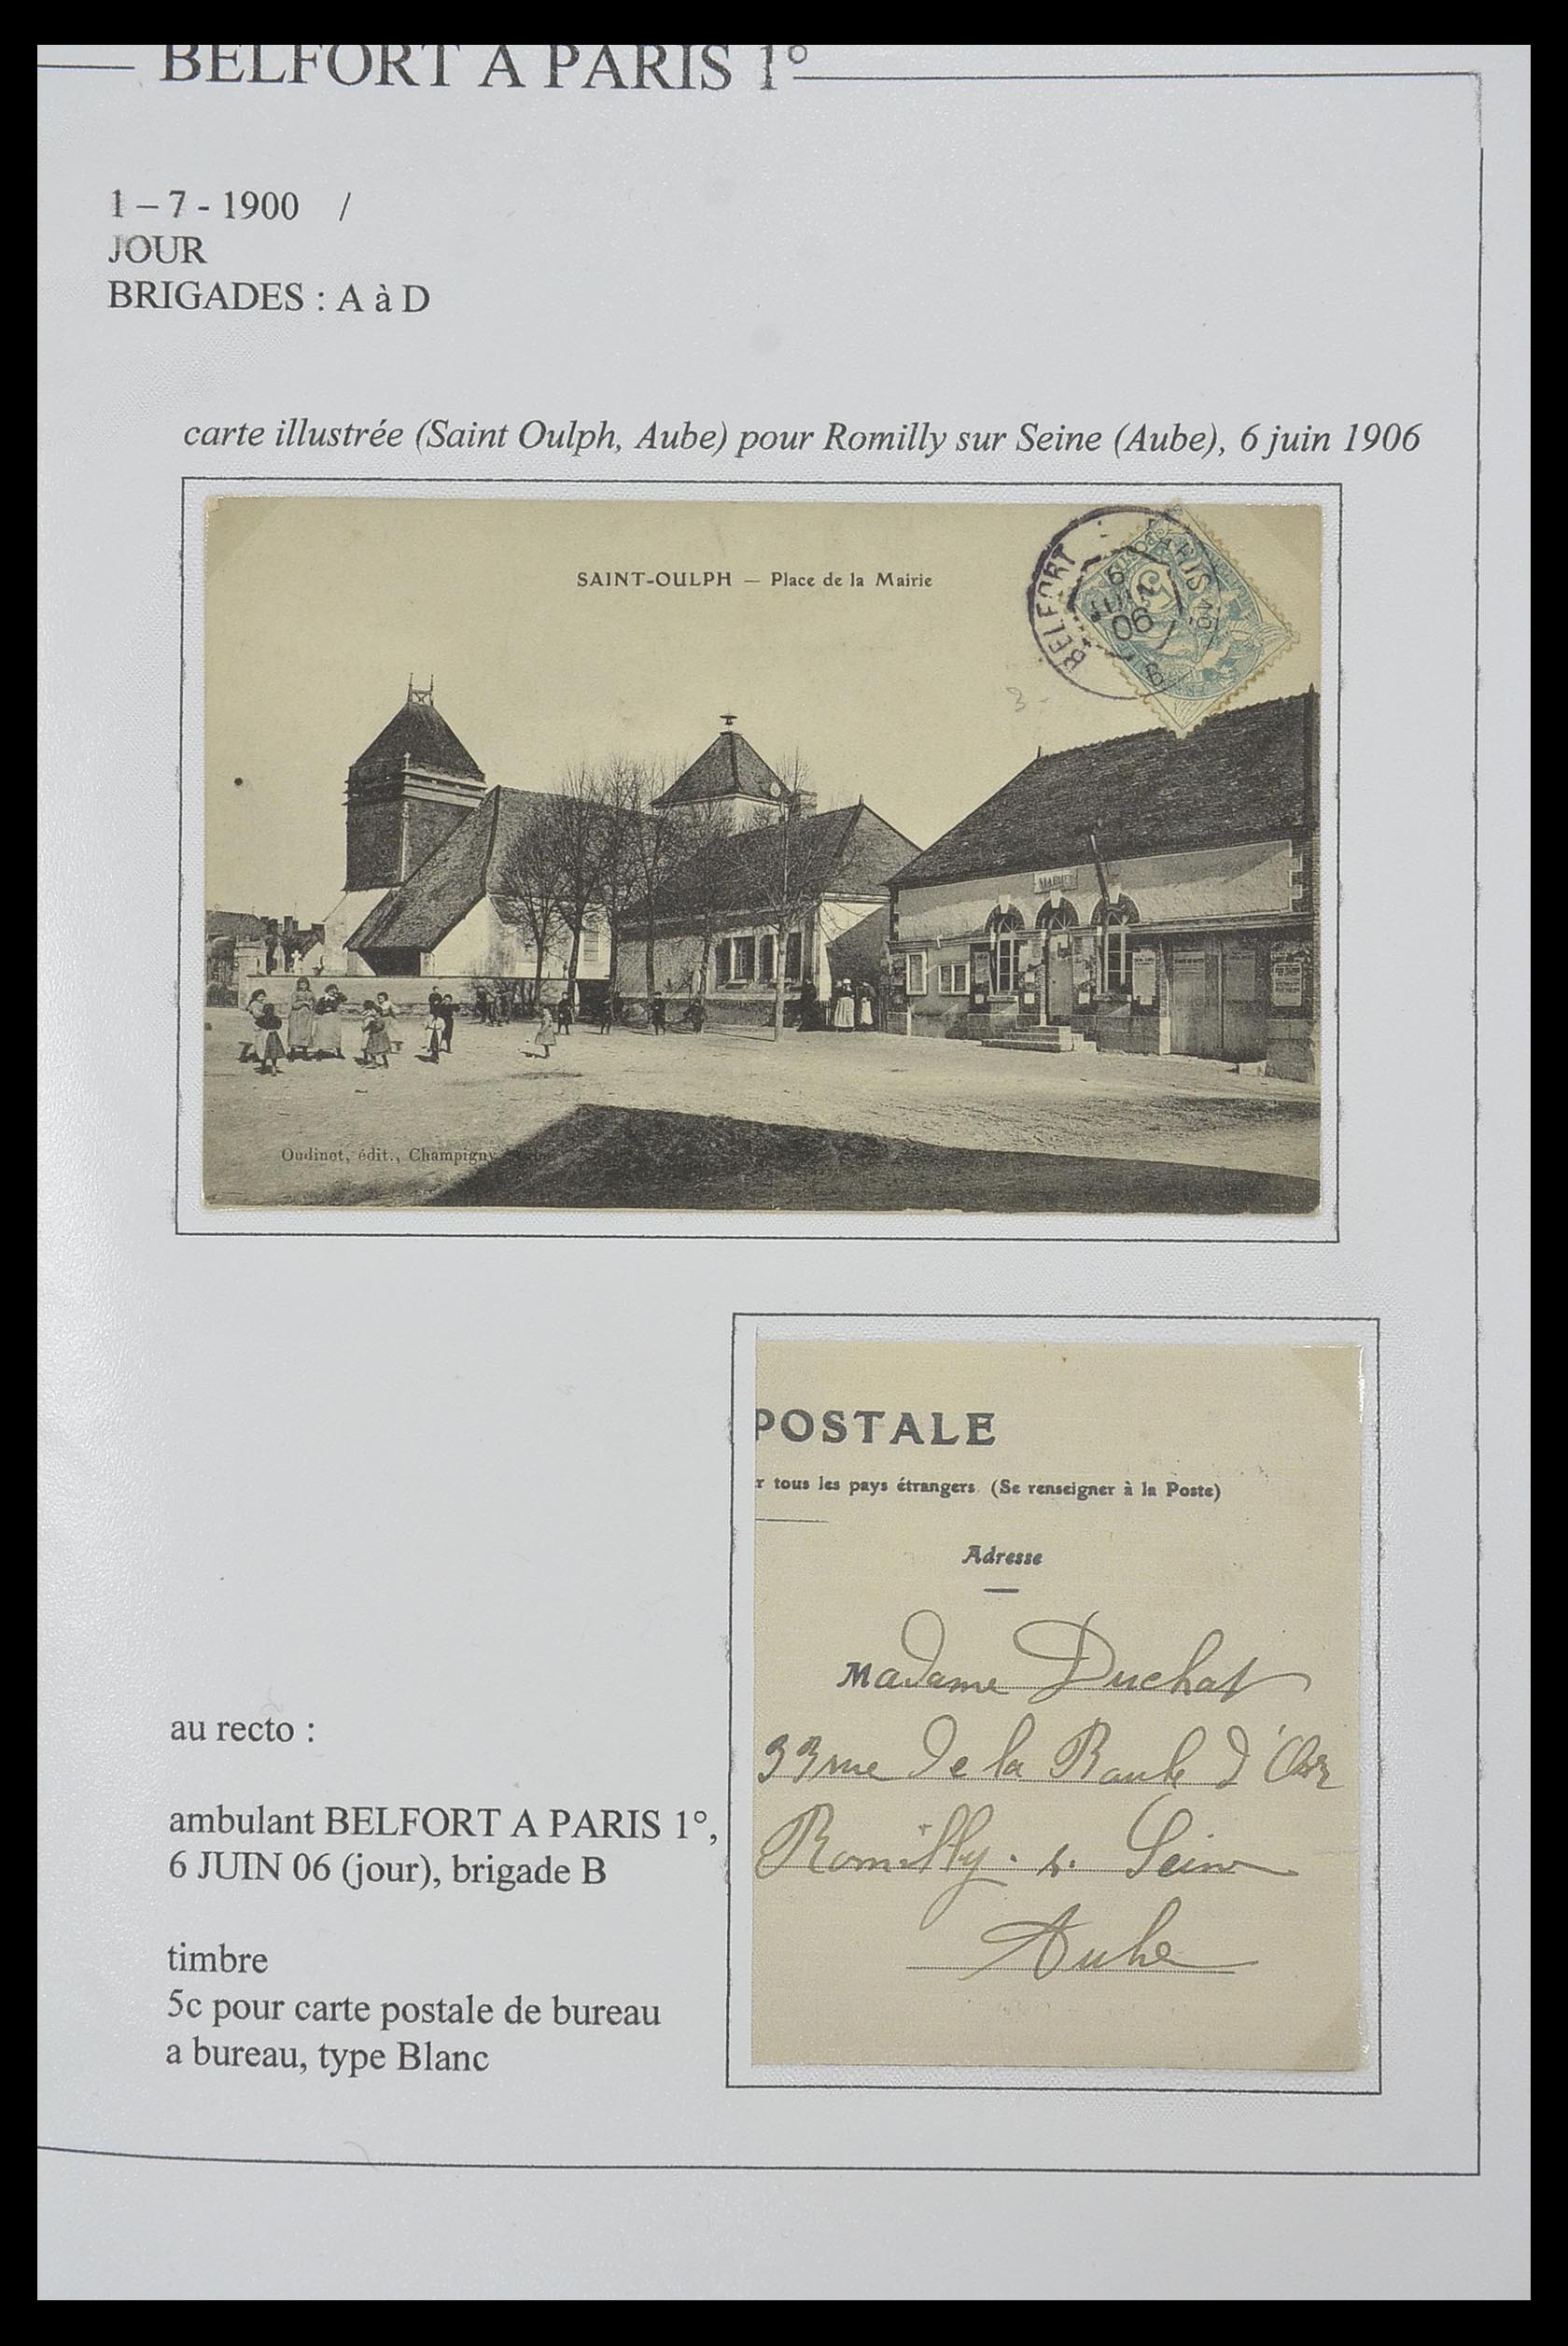 BELFORT A PARIS 1°
1 – 7 - 1900 /
JOUR
BRIGADES : A à D
carte illustrée (Saint Oulph, Aube) pour Romilly sur Seine (Aube), 6 juin 1906
SAINT-OULPH — Place de la Mairie
BELFORT PARIS 1°
6
JUIN
06
B
5
3 -
MAIRIE
Oudinot, édit., Champigny
POSTALE
r tous les pays étrangers (Se renseigner à la Poste)
Adresse
Madame Duchat
33 rue de la Boule d'Or
Romilly . s. Seine
Aube
au recto :
ambulant BELFORT A PARIS 1°,
6 JUIN 06 (jour), brigade B
timbre
5c pour carte postale de bureau
a bureau, type Blanc